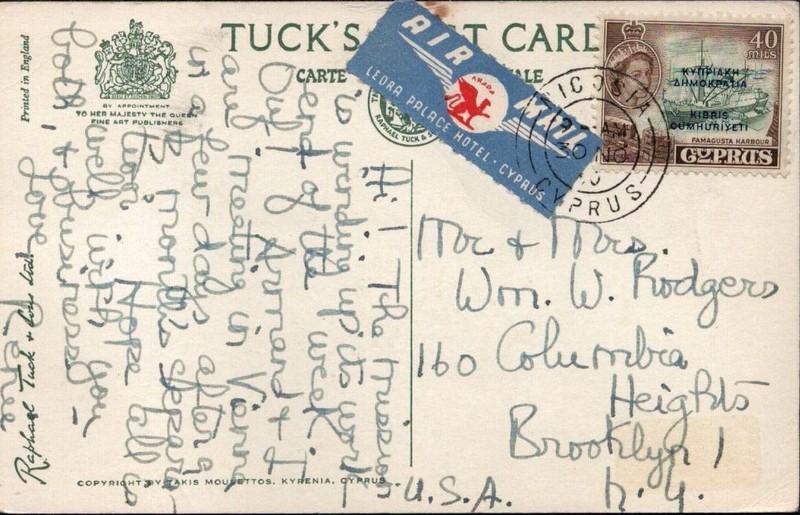 Printed in England
BY APPOINTMENT
TO HER MAJESTY THE QUEEN
FINE ART PUBLISHERS
TUCK'S POST CARD
CARTE POSTALE
RAPHAEL TUCK &
AIR MAIL
LEDRA PALACE HOTEL · CYPRUS
NICOSIA
AM
30 NO
CYPRUS
40
MILS
ΚΥΠΡΙΑΚΗ
ΔΗΜΟΚΡΑΤΙΑ
KIBRIS
CUMHURİYETİ
FAMAGUSTA HARBOUR
CYPRUS
Hi! The mission
is winding up its work
end of the week.
Armand & I
are meeting in Vienna
in a few days after
month's separa
Hope all is
well with you
both, & business
Love
Renee
Raphael Tuck & Sons Ltd.
COPYRIGHT BY TAKIS MOULETTOS, KYRENIA, CYPRUS
Mr & Mrs.
Wm. W. Rodgers
160 Columbia
Heights
Brooklyn 1
N.Y.
U.S.A.